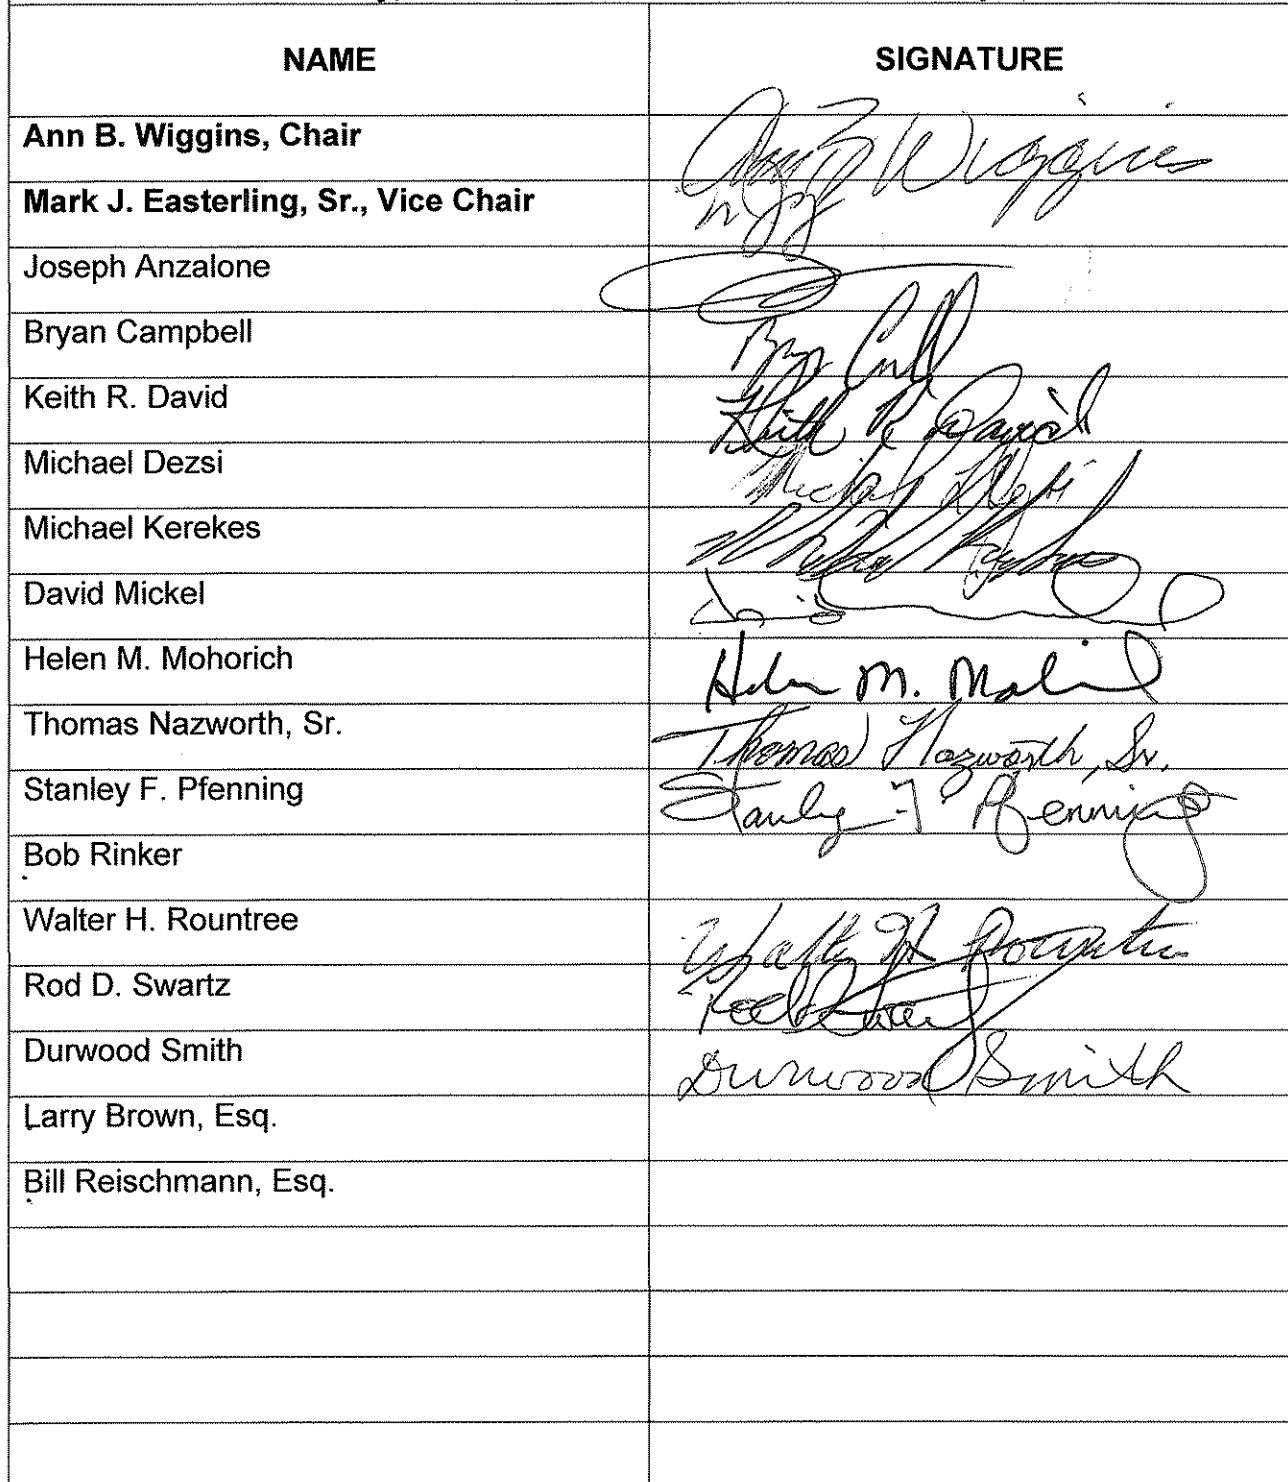 NAME SIGNATURE
Ann B. Wiggins, Chair Ann B Wiggins
Mark J. Easterling, Sr., Vice Chair
Joseph Anzalone
Bryan Campbell
Keith R. David Keith R David
Michael Dezsi Michael Dezsi
Michael Kerekes
David Mickel
Helen M. Mohorich Helen M.
Thomas Nazworth, Sr. Thomas Nazworth, Sr.
Stanley F. Pfenning Stanley F. Pfenning
Bob Rinker
Walter H. Rountree Walter H Rountree
Rod D. Swartz
Durwood Smith Durwood Smith
Larry Brown, Esq.
Bill Reischmann, Esq.